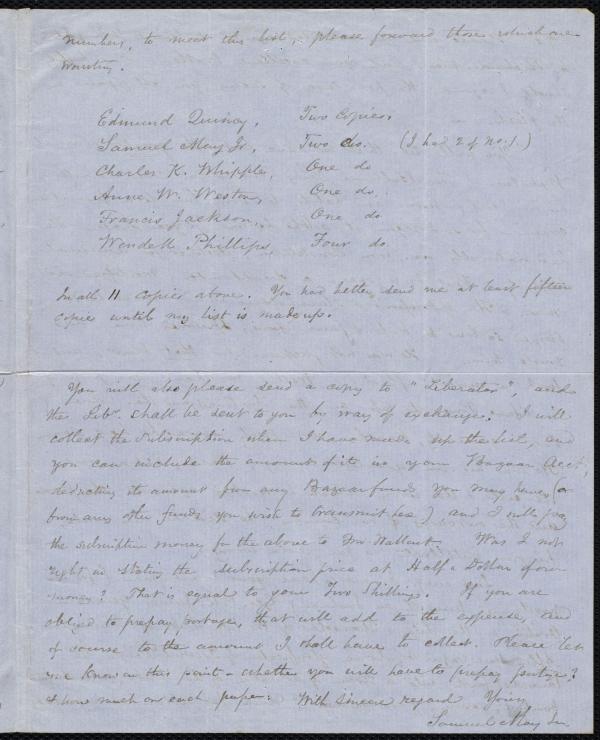 numbers, to meet this list, please forward those which are
wanting.
Edmund Quincy, Two Copies.
Samuel May Jr. Two do. (I had 2 of No. 1.)
Charles K. Whipple, One do
Anne W. Weston, One do
Francis Jackson, One do
Wendell Phillips, Four do.
In all 11 copies above. You had better send me at least fifteen
copies until my list is made up.
You will also please send a copy to "Liberator", and
the Libr. shall be sent to you by way of exchange. I will
collect the subscription when I have made up the list, and
you can include the amount of it in your Bazaar Acct,
deducting its amount from any Bazaar funds you may have, (or
from any other funds you wish to transmit here) and I will pay
the subscription money for the above to Mr Wallcut. Was I not
right in stating the subscription price at Half a Dollar of our
money? That is equal to your Two Shillings. If you are
obliged to prepay postage, that will add to the expense, and
of course to the amount I shall have to collect. Please let
me know on this point - whether you will have to prepay postage?
& how much on each paper. With sincere regard Yours
Samuel May Jr.